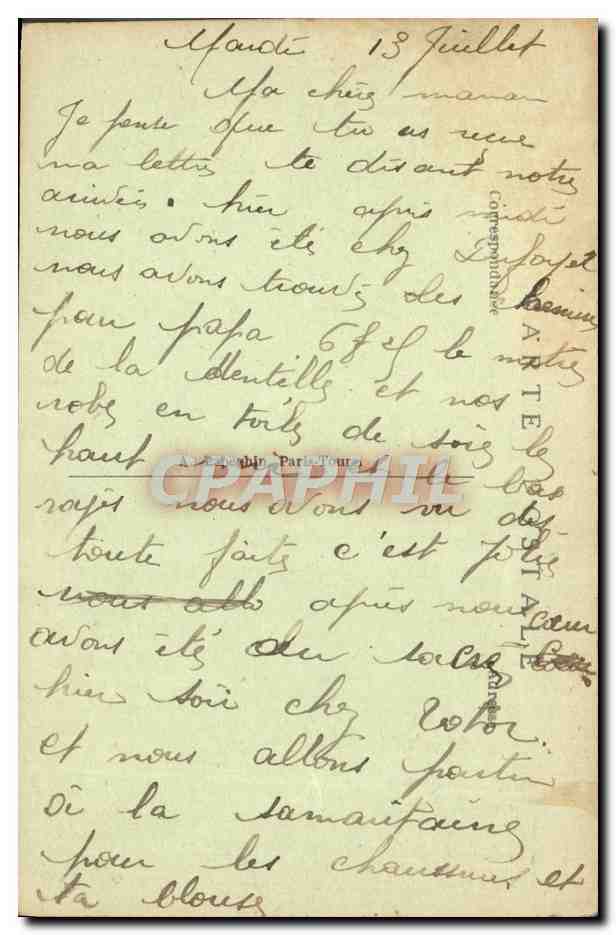 Mardi 13 Juillet
Ma chère maman
Je pense que tu as reçue
ma lettre te disant notre
arrivée. hier après midi
nous avons été chez Dufayel
nous avons trouvé des
pour papa 6f25 le mètre
de la dentelle et nos
robes en toile de soie le
haut et le bas
rayés nous avons vu des
toute faite c'est jolie
nous allo après nous
avons été au sacré coeur
hier soir chez Totor.
et nous allons partir
à la samaritaine
pour les chaussures et
ta blouse
CARTE POSTALE
Correspondance
Adresse
Paris-Tours
CPAPHIL